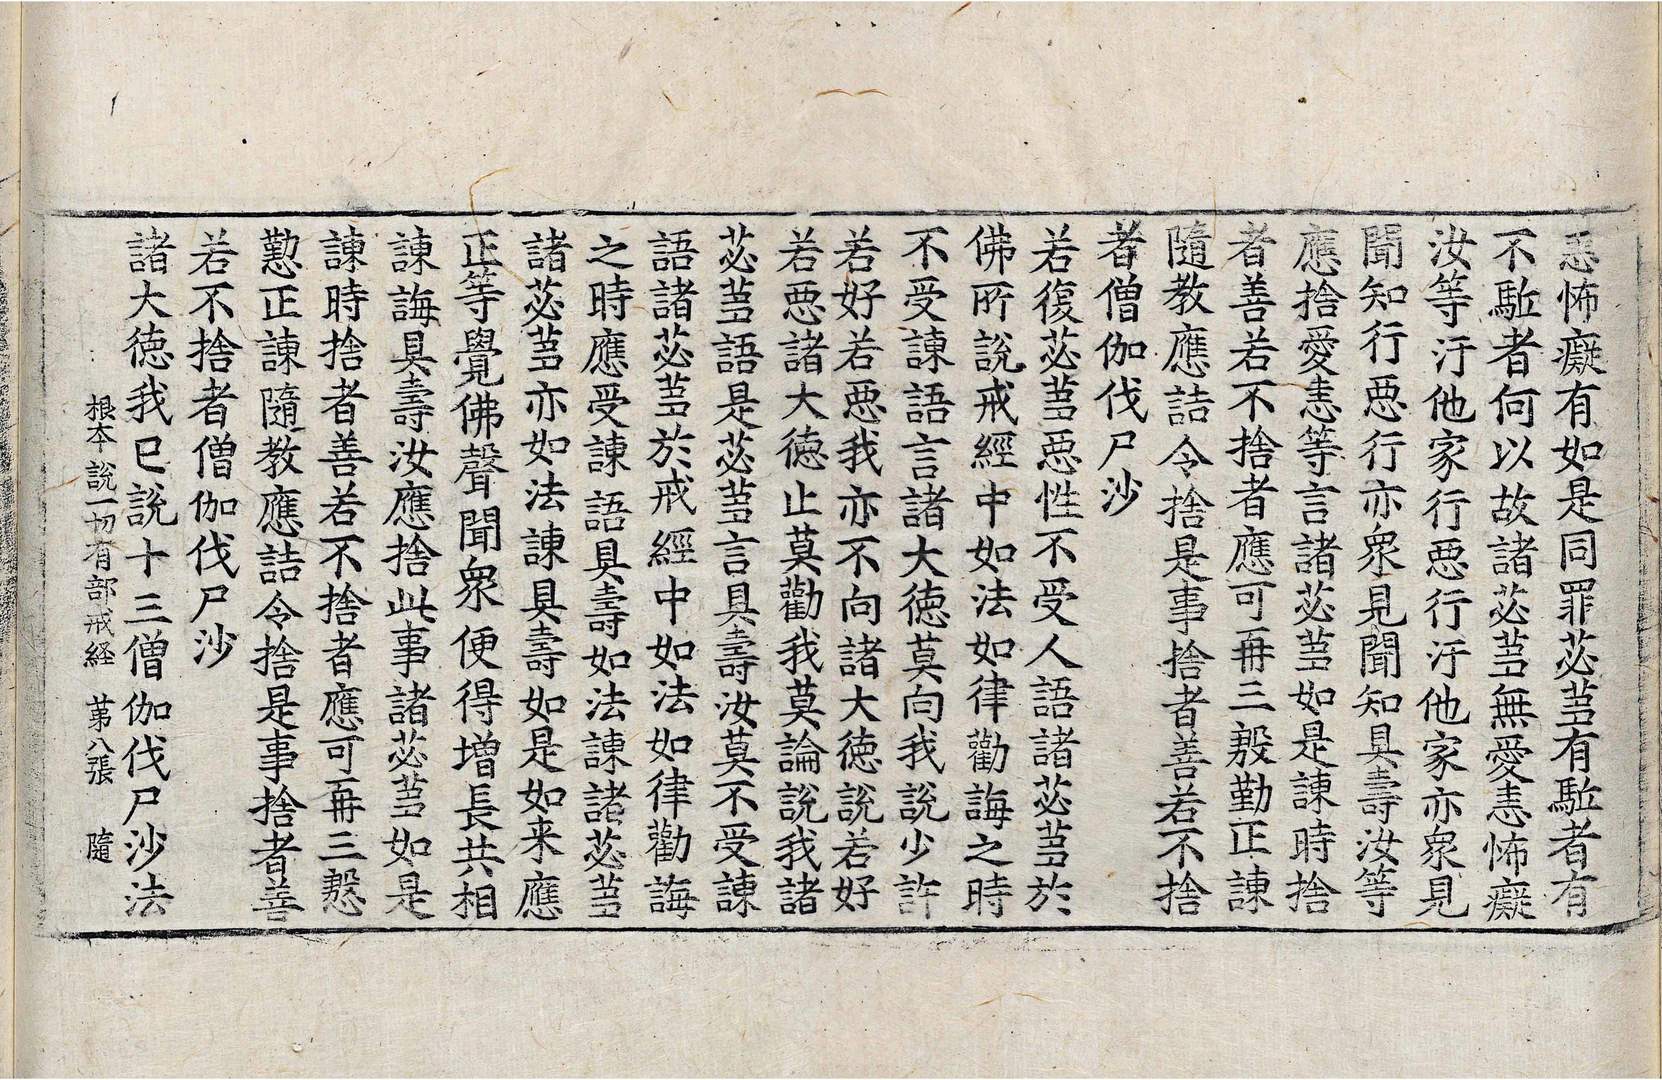 恚怖癡有如是同罪苾芻有駈者有
不駈者何以故諸苾芻無愛恚怖癡
汝等汙他家行惡行汙他家亦衆見
聞知行惡行亦衆見聞知具壽汝等
應捨愛恚等言諸苾芻如是諫時捨
者善若不捨者應可再三殷勤正諫
隨教應詰令捨是事捨者善若不捨
者僧伽伐尸沙
若復苾芻惡性不受人語諸苾芻於
佛所說戒經中如法如律勸誨之時
不受諫語言諸大德莫向我說少許
若好若惡我亦不向諸大德說若好
若惡諸大德止莫勸我莫論說我諸
苾芻語是苾芻言具壽汝莫不受諫
語諸苾芻於戒經中如法如律勸誨
之時應受諫語具壽如法諫諸苾芻
諸苾芻亦如法諫具壽如是如来應
正等覺佛聲聞衆便得增長共相
諫誨具壽汝應捨此事諸苾芻如是
諫時捨者善若不捨者應可再三慇
懃正諫隨教應詰令捨是事捨者善
若不捨者僧伽伐尸沙
諸大德我已說十三僧伽伐尸沙法
根本說一切有部戒経 第八張 隨